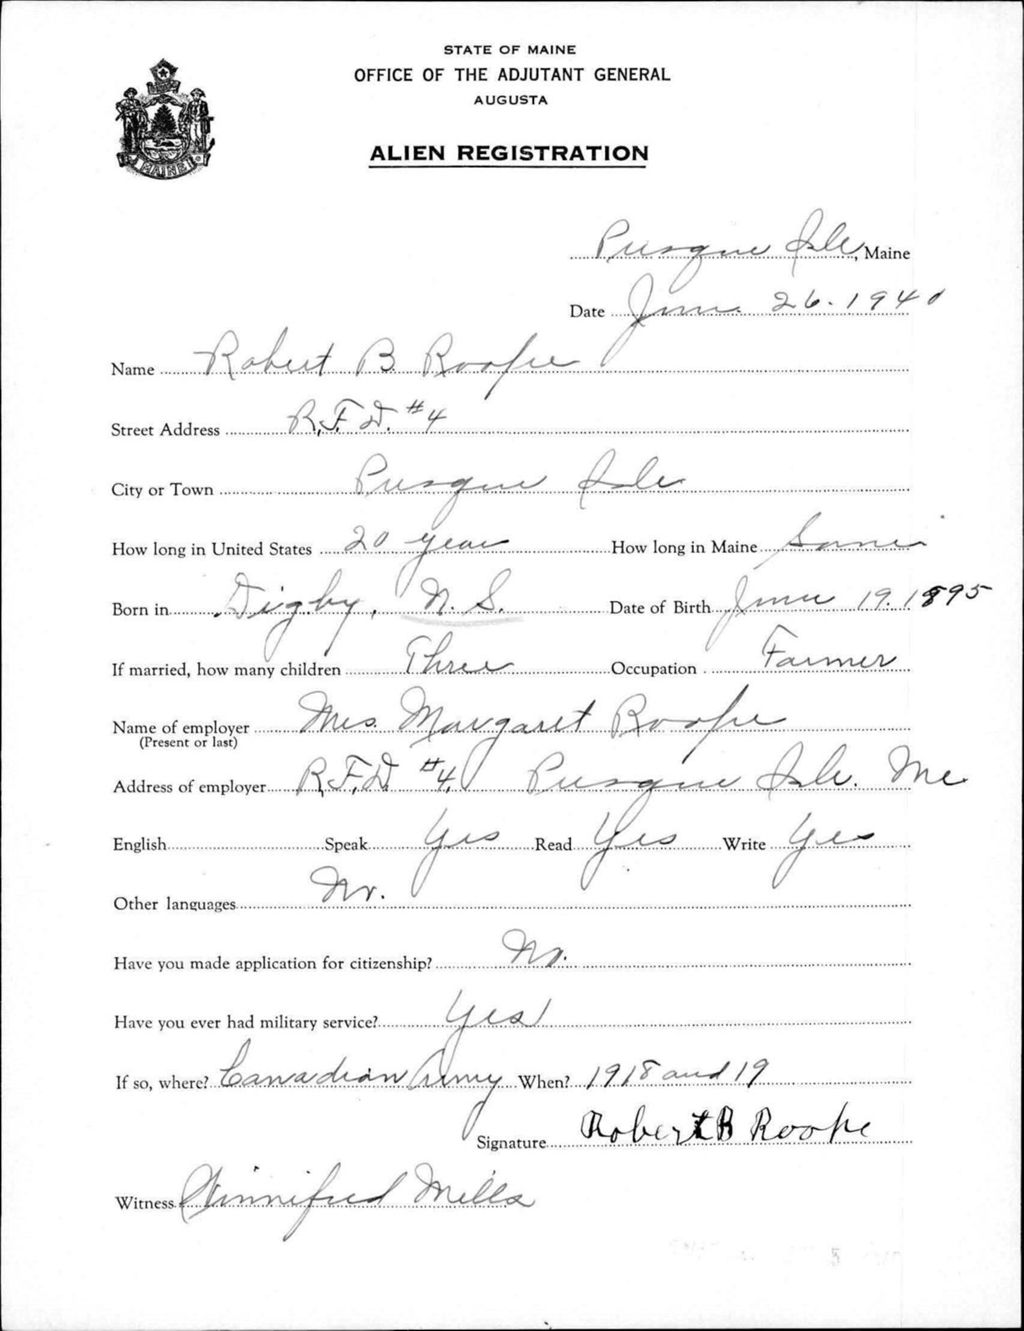 STATE OF MAINE
OFFICE OF THE ADJUTANT GENERAL
AUGUSTA
MAINE
ALIEN REGISTRATION
Presque Isle, Maine
Date June 26. 1940
Name Robert B. Roope
Street Address R.F.D. #4
City or Town Presque Isle
How long in United States 20 years How long in Maine Same
Born in Digby, N.S. Date of Birth June 19. 1895
If married, how many children Three Occupation Farmer
Name of employer Mrs. Margaret Roope
(Present or last)
Address of employer R.F.D. #4. Presque Isle. Me
English Speak Yes Read Yes Write Yes
Other languages No.
Have you made application for citizenship? No.
Have you ever had military service? Yes
If so, where? Canadian Army When? 1918 and 19
Signature Robert B Roope
Witness Winnifred Mills